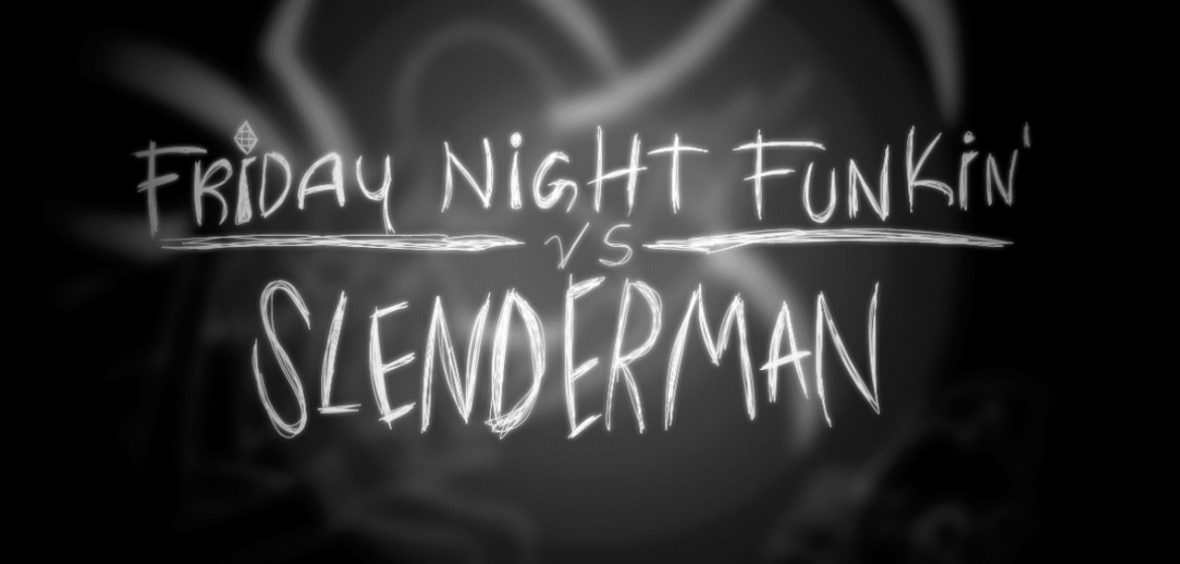 FRiDAY NiGHT FUNKiN'
VS
SLENDERMAN